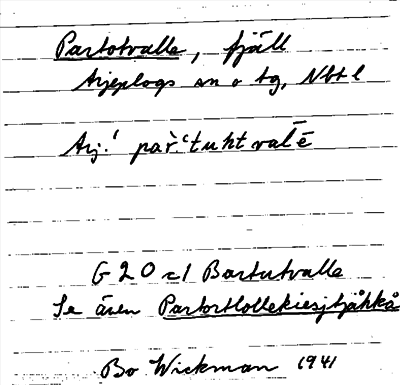 Partotvalle, fjäll
Arjeplogs sn o tg, Nbt l
Arj.
G 20 c1 Bartutvalle
Se även Partortlollekiesjtjåhkå
Bo Wickman 1941